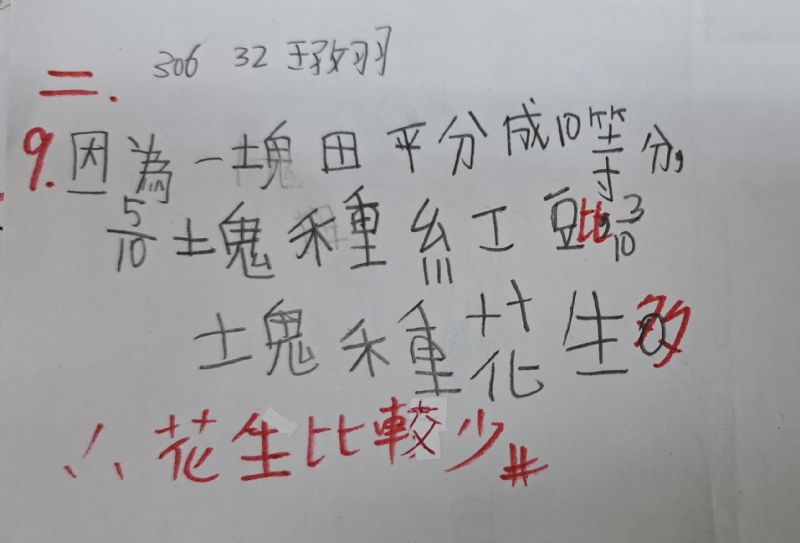 306 32 王致羽
二.
9. 因為一塊田平分成10等分,
5/10塊種紅豆比3/10
塊種花生多
∴花生比較少#